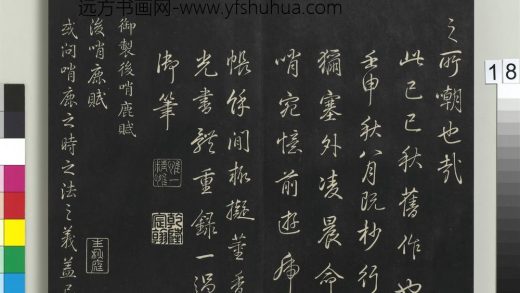 远方书画网-www.yfshuhua.com
之所嘲也哉
此己巳秋舊作也
壬申秋八月既杪行
獮塞外凌晨命
哨宛憶前遊廡
帳餘間極擬董香
光書體重錄一過
御筆
惟一
精惟
乾隆
宸翰
御製後哨鹿賦
後哨鹿賦
或问哨鹿之時之法之義蓋已
18